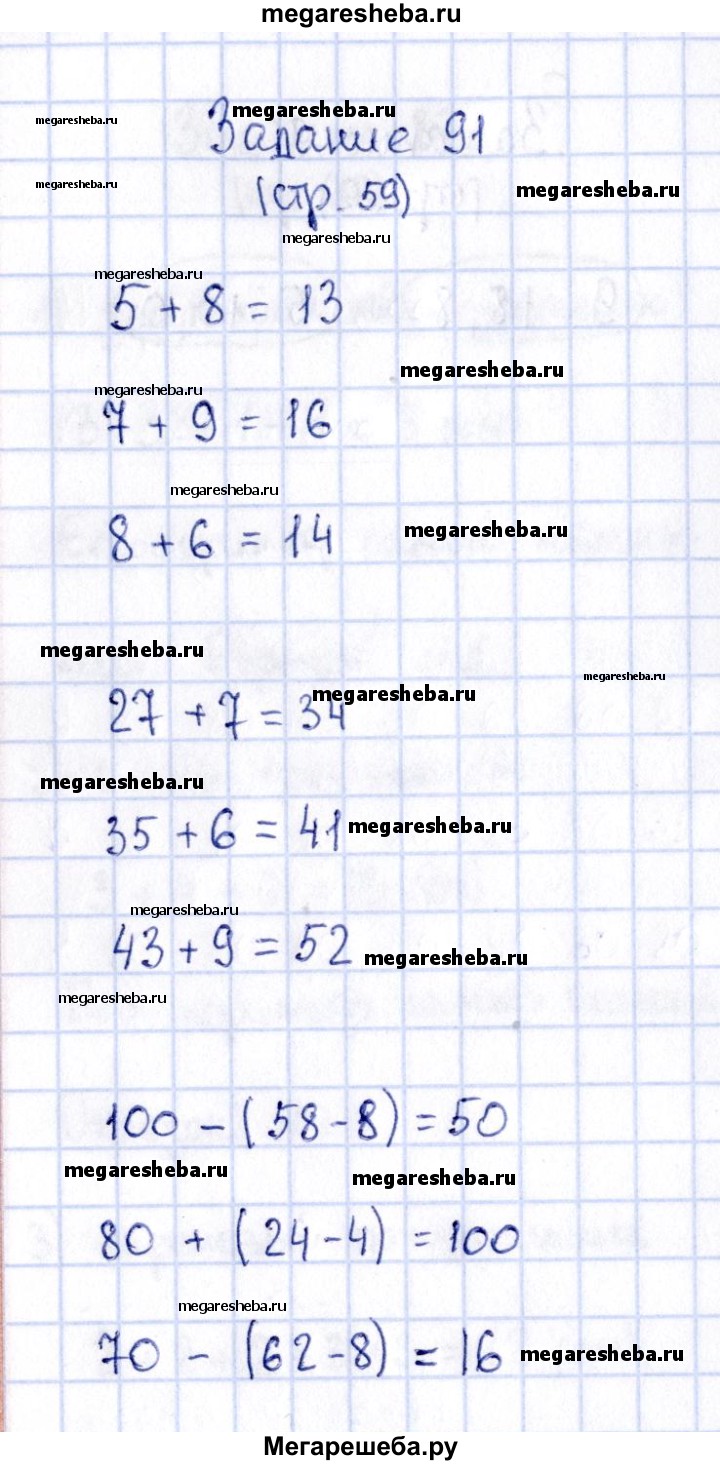 megaresheba.ru
megaresheba.ru
megaresheba.ru
Задание 91
megaresheba.ru
megaresheba.ru
(стр. 59)
megaresheba.ru
megaresheba.ru
5 + 8 = 13
megaresheba.ru
megaresheba.ru
7 + 9 = 16
megaresheba.ru
8 + 6 = 14
megaresheba.ru
megaresheba.ru
megaresheba.ru
megaresheba.ru
27 + 7 = 34
megaresheba.ru
35 + 6 = 41
megaresheba.ru
megaresheba.ru
43 + 9 = 52
megaresheba.ru
megaresheba.ru
100 - (58 - 8) = 50
megaresheba.ru
megaresheba.ru
80 + (24 - 4) = 100
megaresheba.ru
70 - (62 - 8) = 16
megaresheba.ru
Мегарешеба.ру